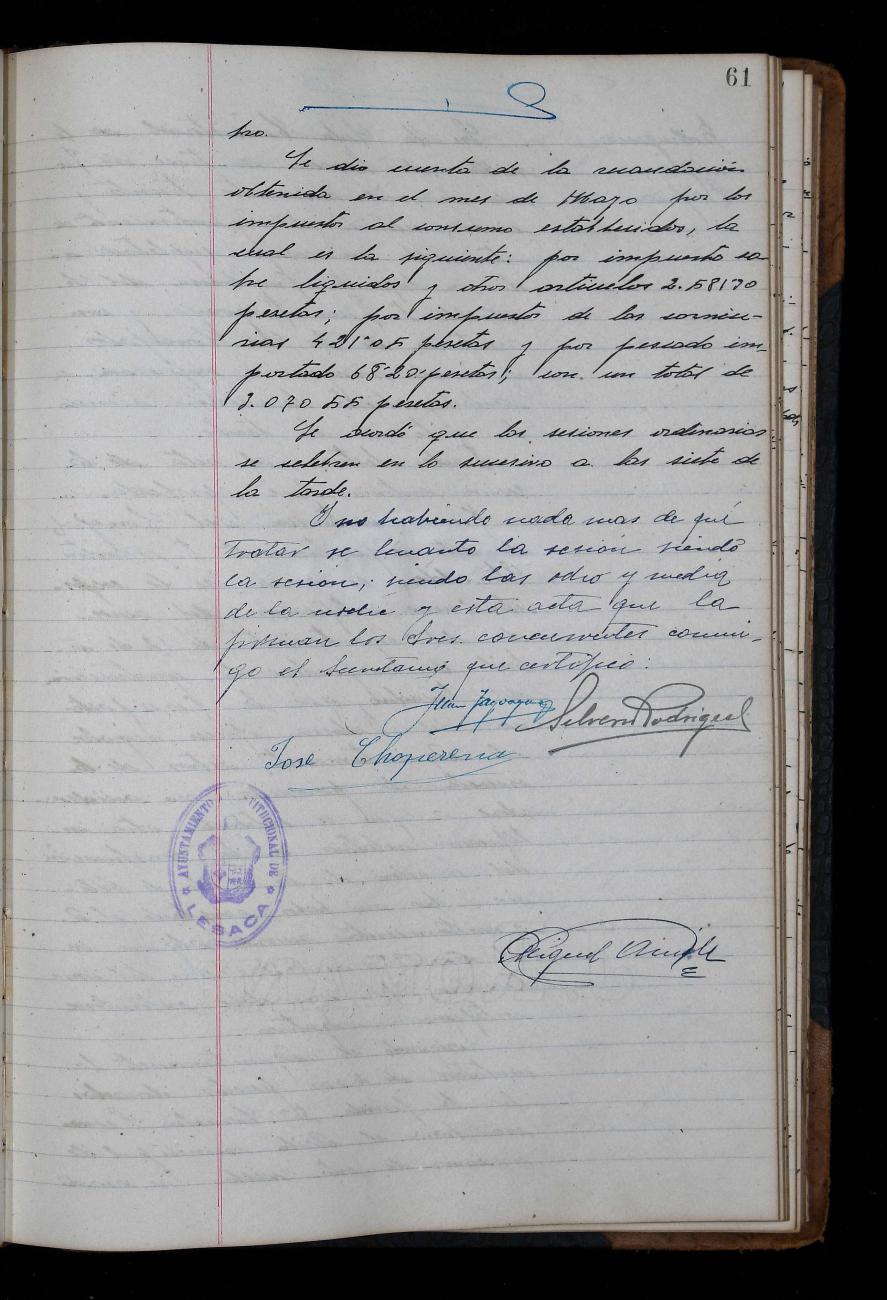 61
bro.
Se dio cuenta de la recaudación
obtenida en el mes de Mayo por los
impuestos al consumo establecidos, la
cual es la siguiente: por impuesto so-
bre liquidos y otros articulos 2.581'30
pesetas; por impuestos de las carnice-
rias 421'05 pesetas y por pescado im-
portado 68'20 pesetas; con un total de
3.070 55 pesetas.
Se acordó que las sesiones ordinarias
se celebren en lo sucesivo a las siete de
la tarde.
Y no habiendo nada mas de qué
tratar se levanto la sesión siendo
la sesión; siendo las ocho y media
de la noche y esta acta que la
firman los Sres. concurrentes conmi-
go el Secretario que certifico:
Silverio Rodriguez
Jose Choperena
AYUNTAMIENTO CONSTITUCIONAL DE
LESACA
Miguel